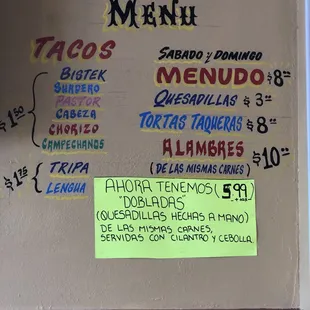 MENU
TACOS
BISTEK
SUADERO
PASTOR
CABEZA
CHORIZO
CAMPECHANOS
$1.50
TRIPA
LENGUA
$1.75
SABADO Y DOMINGO
MENUDO $8.00
QUESADILLAS $3.00
TORTAS TAQUERAS $8.00
ALAMBRES
(DE LAS MISMAS CARNES) $10.00
AHORA TENEMOS (5.99)
"DOBLADAS"
(QUESADILLAS HECHAS A MANO)
DE LAS MISMAS CARNES,
SERVIDAS CON CILANTRO Y CEBOLLA.